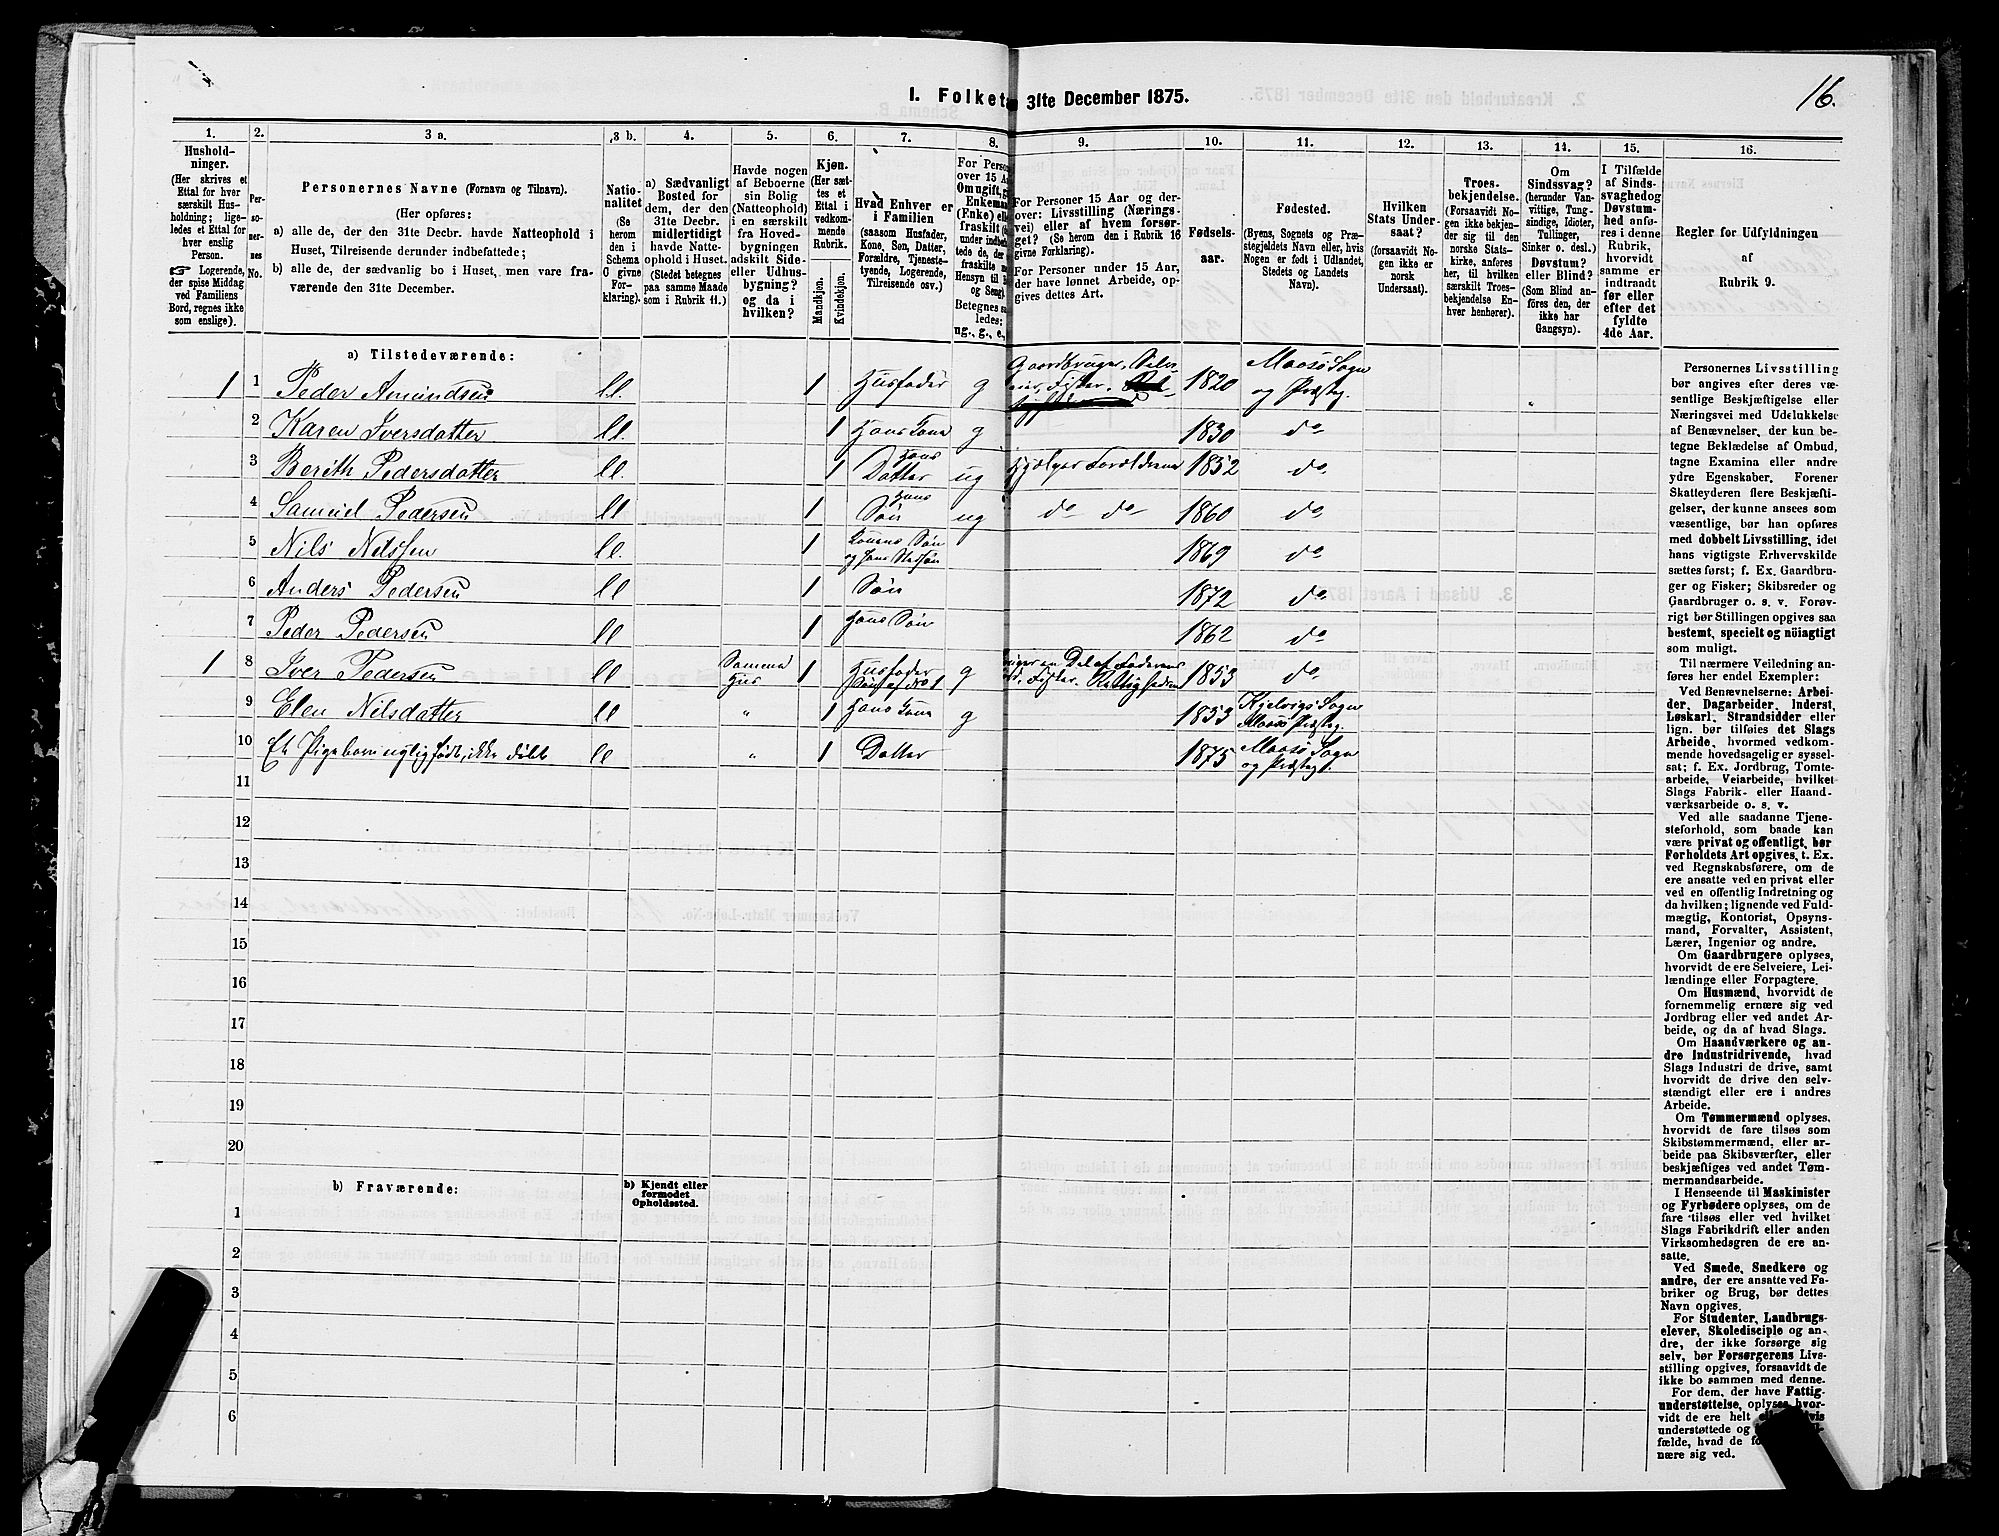 16.
I. Folket 31te December 1875.
1. 2. 3 a. 3 b. 4. 5. 6. 7. 8. 9. 10. 11. 12. 13. 14. 15. 16.
Hushold-
ninger.
(Her skrives et
Ettal for hver
særskilt Hus-
holdning; lige-
ledes et Ettal for
hver enslig
Person.
☞ Logerende,
der spise Middag
ved Familiens
Bord, regnes ikke
som enslige).
Per-
so-
ner-
nes
No.
Personernes Navne (Fornavn og Tilnavn).
(Her opføres:
a) alle de, der den 31te Decbr. havde Natteophold i
Huset, Tilreisende derunder indbefattede;
b) alle de, der sædvanlig bo i Huset, men vare fra-
værende den 31te December.
Natio-
nalitet
(Se
herom
den i
Schema
C givne
For-
klaring).
a) Sædvanligt
Bosted for
dem, der den
31te Decbr.
midlertidigt
havde Natte-
ophold i Huset.
(Stedet betegnes
paa samme Maade
som i Rubrik 11.)
Havde nogen
af Beboerne
sin Bolig
(Natteophold)
i en særskilt
fra Hoved-
bygningen
adskilt Side-
eller Udhus-
bygning?
og da i
hvilken?
Kjøn.
(Her sæt-
tes et
Ettal i
vedkom-
mende
Rubrik.
Mandkjøn.
Kvindekjøn.
Hvad Enhver er
i Familien
(saasom Husfader,
Kone, Søn, Datter,
Forældre, Tjeneste-
tyende, Logerende,
Tilreisende osv.)
For Perso
over 15 A
Om ugift, g
Enkema
(Enke) elle
fraskilt (
under indb
tede de, de
fraskilte
Hensyn til B
og Seng)
Betegnes sa
ledes:
ug., g., e.,
For Personer 15 Aar og der-
over: Livsstilling (Nærings-
vei) eller af hvem forsør-
get? (Se herom den i Rubrik 16
givne Forklaring).
For Personer under 15 Aar,
der have lønnet Arbeide, op-
gives dettes Art.
Fødsels-
aar.
Fødested.
(Byens, Sognets og Præ-
stegjeldets Navn eller, hvis
Nogen er født i Udlandet,
Stedets og Landets
Navn).
Hvilken
Stats Under-
saat?
(forsaavidt No-
gen ikke er
norsk
Undersaat).
Troes-
bekjendelse.
(Forsaavidt No-
gen ikke bekjen-
der sig til den
norske Stats-
kirke, anføres
her, til hvilken
særskilt Troes-
bekjendelse En-
hver henhører).
Om
Sindssvag?
(herunder Van-
vittige, Tung-
sindige, Idioter,
Tullinger,
Sinker o. desl.)
Døvstum?
eller Blind?
(Som Blind an-
føres den, der
ikke har
Gangsyn).
I Tilfælde
af Sinds-
svaghed og
Døvstum-
hed anfø-
res i denne
Rubrik,
hvorvidt
samme er
indtraadt
før eller
efter det
fyldte
4de Aar.
Regler for Udfyldningen
af
Rubrik 9.
a) Tilstedeværende:
1 1 Peder Amundsen ll. 1 Husfader g Gaardbruger, Fisker. 1820 Maasø Sogn og Præstg.
2 Karen Iversdatter ll. 1 Hans Kone g 1830 do
3 Berith Pedersdatter ll. 1 Hans Datter ug Hjælper Forældrene 1852 do
4 Samuel Pedersen ll 1 Hans Søn ug do do 1860 do
5 Nils Nilssen ll. 1 Konens Søn og hans Stedsøn 1869 do
6 Anders Pedersen ll 1 Søn 1872 do
7 Peder Pedersen ll 1 Hans Søn 1862 do
1 8 Iver Pedersen ll Samme Hus 1 Husfader Søn af No 1 g en Del af Faderens Fisker. 1853 do
9 Elen Nilsdatter ll " 1 Hans Kone g 1853 Kjelvigs Sogn Maasø Præstg.
10 Et Pigebarn nylig født, ikke døbt ll " 1 Datter 1875 Maasø Sogn og Præstg.
11
12
13
14
15
16
17
18
19
20
b) Fraværende:
b) Kjendt eller
formodet
Opholdssted.
1
2
3
4
5
6
Personernes Livsstilling
bør angives efter deres væ-
sentlige Beskjæftigelse eller
Næringsvei med Udelukkelse
af Benævnelser, der kun be-
tegne Beklædelse af Ombud,
tagne Examina eller andre
ydre Egenskaber. Forener
Skatteyderen flere Beskjæfti-
gelser, der kunne ansees som
væsentlige, bør han opføres
med dobbelt Livsstilling, idet
hans vigtigste Erhvervskilde
sættes først; f. Ex. Gaardbru-
ger og Fisker; Skibsreder og
Gaardbruger o. s. v. Forøv-
rigt bør Stillingen opgives saa
bestemt, specielt og nøiagtigt
som muligt.
Til nærmere Veiledning an-
føres her endel Exempler:
Ved Benævnelserne: Arbei-
der, Dagarbeider, Inderst,
Løskarl, Strandsidder eller
lign. bør tilføies det Slags
Arbeide, hvormed vedkom-
mende hovedsagelig er syssel-
sat; f. Ex. Jordbrug, Tomte-
arbeide, Veiarbeide, hvilket
Slags Fabrik- eller Haand-
værksarbeide o. s. v.
Ved alle saadanne Tjene-
steforhold, som baade kan
være privat og offentligt, bør
Forholdets Art opgives, t. Ex.
ved Regnskabsførere, om de
ere ansatte ved en privat eller
ved en offentlig Indretning og
da hvilken; lignende ved Fuld-
mægtig, Kontorist, Opsyns-
mand, Forvalter, Assistent,
Lærer, Ingeniør og andre.
Om Gaardbrugere oplyses,
hvorvidt de ere Selveiere, Lei-
lændinge eller Forpagtere.
Om Husmænd, hvorvidt de
fornemmelig ernære sig ved
Jordbrug eller ved andet Ar-
beide, og da af hvad Slags.
Om Haandværkere og an-
dre Industridrivende, hvad
Slags Industri de drive, samt
hvorvidt de drive den selv-
stændigt eller ere i andres
Arbeide.
Om Tømmermænd oplyses,
hvorvidt de fare tilsøs som
Skibstømmermænd, eller ar-
beide paa Skibsværfter, eller
beskjæftiges ved andet Tøm-
mermandsarbeide.
I Henseende til Maskinister
og Fyrbødere oplyses, om de
fare tilsøs eller ved hvilket
Slags Fabrikdrift eller anden
Virksomhedsgren de ere an-
satte.
Ved Smede, Snedkere og
andre, der ere ansatte ved Fa-
briker og Brug, bør dettes
Navn opgives.
For Studenter, Landbrugs-
elever, Skoledisciple og an-
dre, der ikke forsørge sig
selv, bør Forsørgerens Livs-
stilling opgives, forsaavidt de
ikke bo sammen med denne.
For dem, der have Fattig-
understøttelse, oplyses, hvor-
vidt de ere helt
understøttede og
fælde, hvad de
nære sig ved.